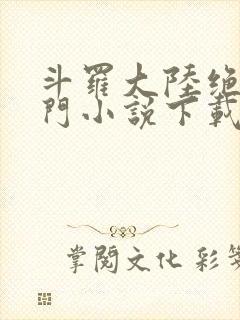 斗羅大陸絶
門小説下載
掌閱文化 彩